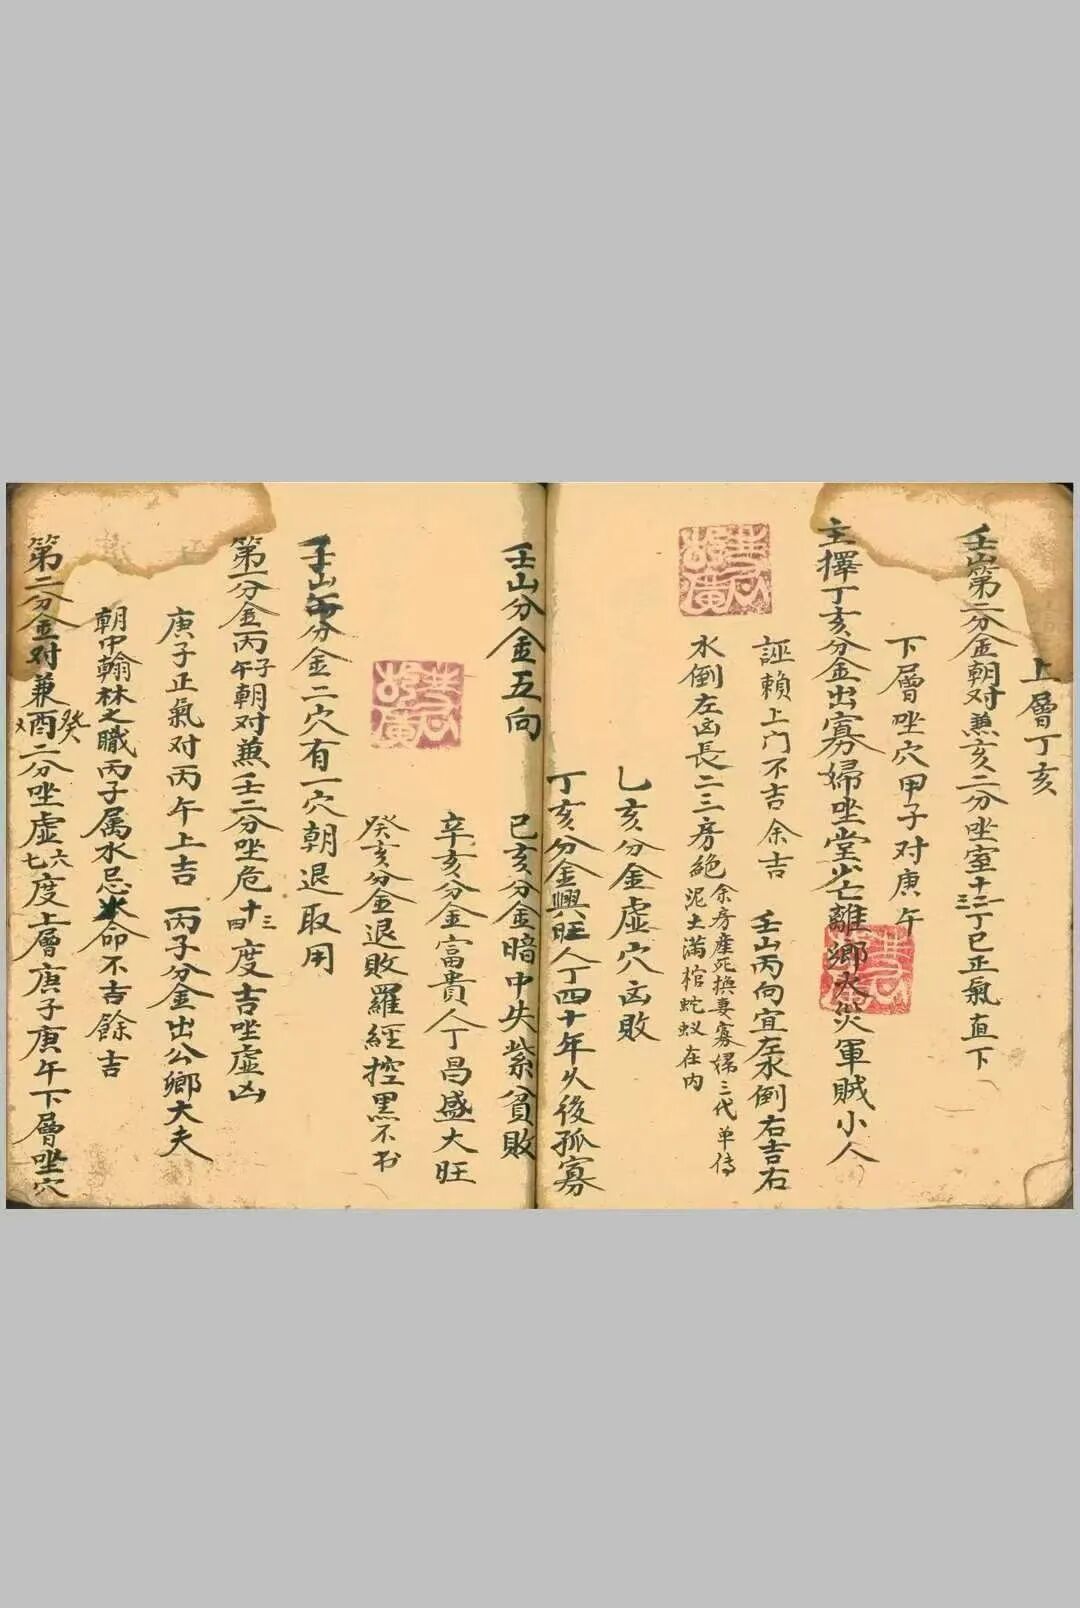 上層丁亥
壬山第二分金朝对兼亥二分坐室十三二丁巳正氣直下
下層坐穴甲子对庚午
主擇丁亥分金出寡婦坐堂少亡離鄉火災軍賊小人
誣賴上门不吉余吉 壬山丙向宜左水倒右吉右
水倒左凶長二三房絶余房產死换妻寡婦三代单傳
泥土满棺蛇蚁在内
乙亥分金虚穴凶敗
丁亥分金興旺人丁四十年久後孤寡
壬山分金五向 己亥分金暗中失紫貧敗
辛亥分金富貴人丁昌盛大旺
癸亥分金退敗羅經控黑不书
子山分金二穴有一穴朝退取用
第一分金丙子午朝对兼壬二分坐危十三四度吉坐虚凶
庚子正氣对丙午上吉 丙子分金出公鄉大夫
朝中翰林之職丙子属水忌命不吉餘吉
第二分金对兼酉癸二分坐虚六七度上層庚子庚午下層坐穴